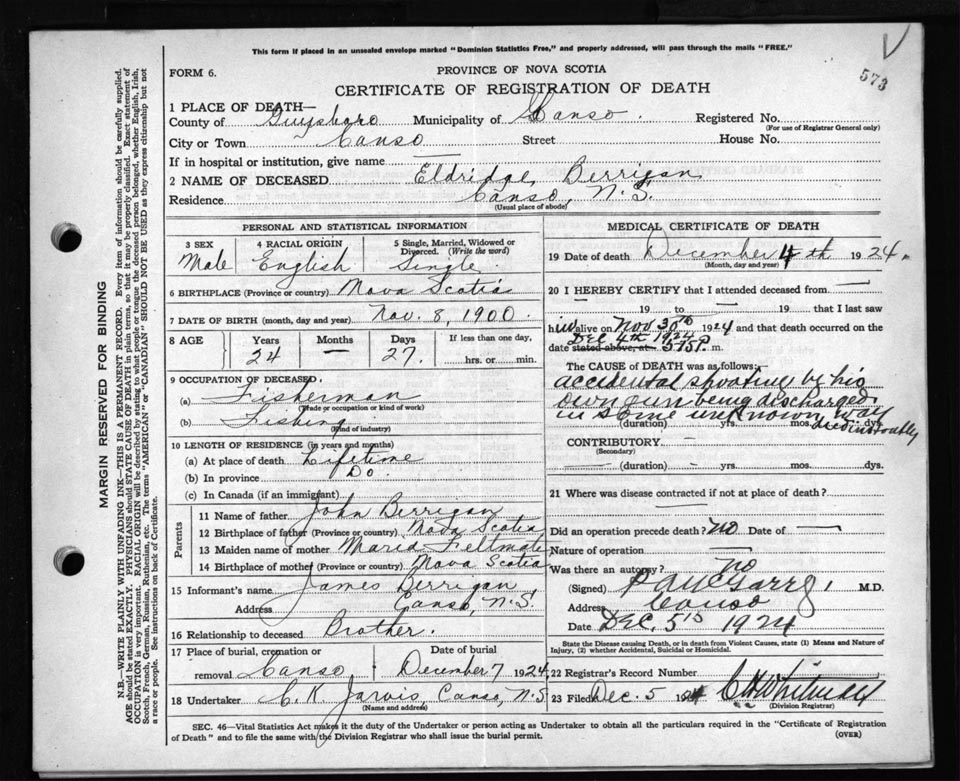 This form if placed in an unsealed envelope marked "Dominion Statistics Free," and properly addressed, will pass through the mails "FREE."
573
FORM 6.
PROVINCE OF NOVA SCOTIA
CERTIFICATE OF REGISTRATION OF DEATH
1 PLACE OF DEATH—
County of Guysboro Municipality of Canso. Registered No.
(For use of Registrar General only)
City or Town Canso Street House No.
If in hospital or institution, give name —
2 NAME OF DECEASED Eldridge Berrigan
Residence Canso, N.S.
(Usual place of abode)
PERSONAL AND STATISTICAL INFORMATION
3 SEX 4 RACIAL ORIGIN 5 Single, Married, Widowed or Divorced. (Write the word)
Male English Single.
6 BIRTHPLACE (Province or country) Nova Scotia
7 DATE OF BIRTH (month, day and year) Nov. 8, 1900.
8 AGE Years Months Days If less than one day,
24 — 27. hrs. or min.
9 OCCUPATION OF DECEASED.
(a) Fisherman
(Trade or occupation or kind of work)
(b) Fishing
(Kind of industry)
10 LENGTH OF RESIDENCE (in years and months)
(a) At place of death Lifetime
(b) In province Do.
(c) In Canada (if an immigrant)
Parents
11 Name of father John Berrigan
12 Birthplace of father (Province or country) Nova Scotia
13 Maiden name of mother Maria Feltmate
14 Birthplace of mother (Province or country) Nova Scotia
15 Informant's name James Berrigan
Address Canso, N.S.
16 Relationship to deceased Brother.
17 Place of burial, cremation or removal Date of burial
Canso December 7 1924
18 Undertaker C. K. Jarvis, Canso, N.S
(Name and address)
MEDICAL CERTIFICATE OF DEATH
19 Date of death December 4th 1924.
(Month, day and year)
20 I HEREBY CERTIFY that I attended deceased from —
19 to — 19 that I last saw
him alive on Nov 30th 1924 and that death occurred on the
Dec 4th 1924
date stated above, at 5 P. m.
The CAUSE of DEATH was as follows:
accidental shooting by his
own gun being discharged
in some unknown way
(duration) yrs. mos. dys.
died instantly
CONTRIBUTORY. —
(Secondary)
— (duration) — yrs. — mos. dys.
21 Where was disease contracted if not at place of death?
Did an operation precede death? No Date of —
Nature of operation —
Was there an autopsy? no
(Signed) M.D.
Address Canso
Date Dec. 5th 1924
State the Disease causing Death, or in death from Violent Causes, state (1) Means and Nature of Injury, (2) whether Accidental, Suicidal or Homicidal.
22 Registrar's Record Number
23 Filed Dec. 5 1924 Whitman
(Division Registrar)
SEC. 46—Vital Statistics Act makes it the duty of the Undertaker or person acting as Undertaker to obtain all the particulars required in the "Certificate of Registration
of Death" and to file the same with the Division Registrar who shall issue the burial permit. (OVER)
MARGIN RESERVED FOR BINDING
N.B.—WRITE PLAINLY WITH UNFADING INK—THIS IS A PERMANENT RECORD. Every item of information should be carefully supplied.
AGE should be stated EXACTLY. PHYSICIANS should STATE CAUSE OF DEATH in plain terms, so that it may be properly classified. Exact statement of
OCCUPATION is very important. RACIAL ORIGIN will be described by stating to what people or tongue the deceased person belonged, whether English, Irish,
Scotch, French, German, Russian, Ruthenian, etc. The terms "AMERICAN" or "CANADIAN" SHOULD NOT BE USED as they express citizenship but not
a race or people. See instructions on back of Certificate.